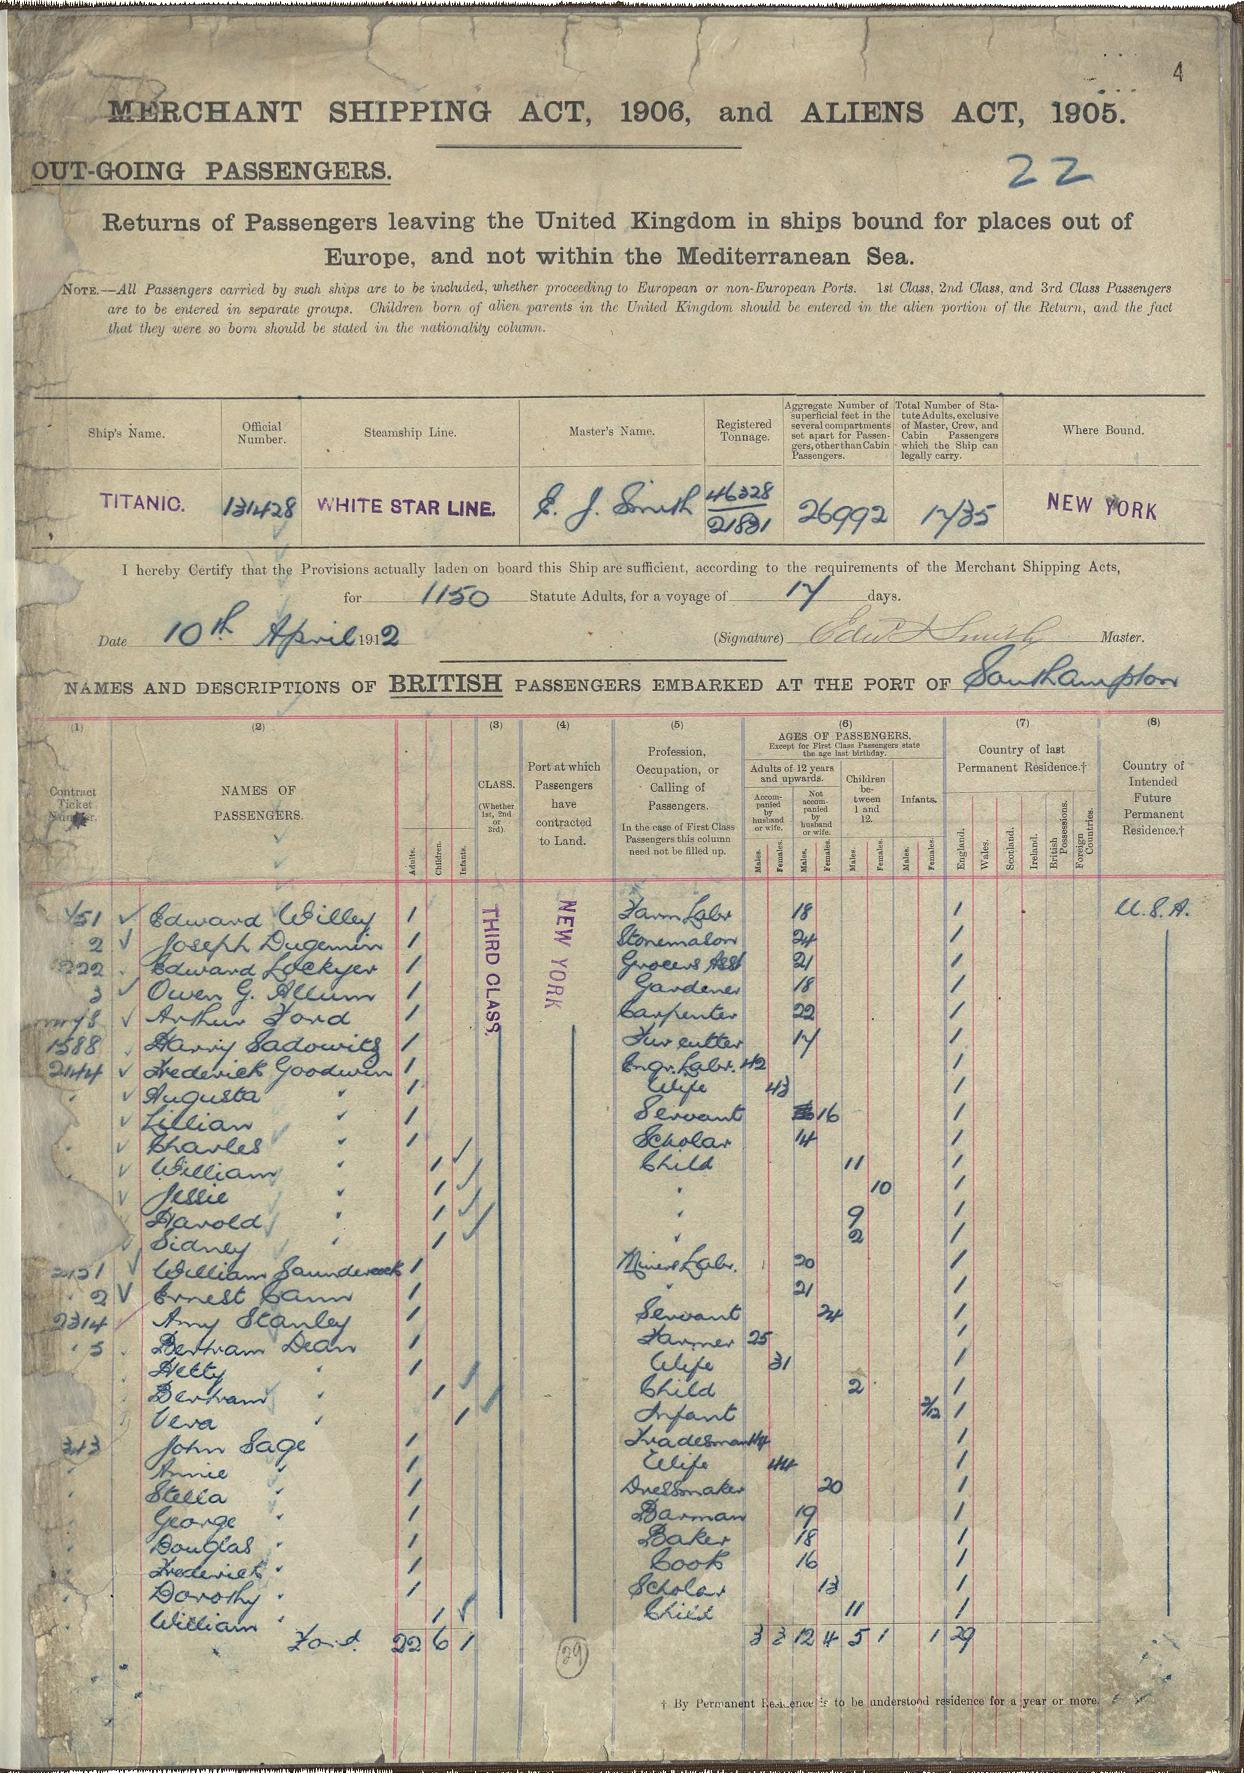 4
MERCHANT SHIPPING ACT, 1906, and ALIENS ACT, 1905.
OUT-GOING PASSENGERS.
22
Returns of Passengers leaving the United Kingdom in ships bound for places out of
Europe, and not within the Mediterranean Sea.
NOTE.—All Passengers carried by such ships are to be included, whether proceeding to European or non-European Ports. 1st Class, 2nd Class, and 3rd Class Passengers
are to be entered in separate groups. Children born of alien parents in the United Kingdom should be entered in the alien portion of the Return, and the fact
that they were so born should be stated in the nationality column.
Ship's Name. Official Number. Steamship Line. Master's Name. Registered Tonnage. Aggregate Number of superficial feet in the several compartments set apart for Passengers, other than Cabin Passengers. Total Number of Statute Adults, exclusive of Master, Crew, and Cabin Passengers which the Ship can legally carry. Where Bound.
TITANIC. 131428 WHITE STAR LINE. E. J. Smith 46328 21831 26992 1735 NEW YORK
I hereby Certify that the Provisions actually laden on board this Ship are sufficient, according to the requirements of the Merchant Shipping Acts,
for 1150 Statute Adults, for a voyage of 17 days.
Date 10th April 1912 (Signature) Edwd J Smith Master.
NAMES AND DESCRIPTIONS OF BRITISH PASSENGERS EMBARKED AT THE PORT OF Southampton
(1) (2) (3) (4) (5) (6) (7) (8)
Contract Ticket Number. NAMES OF PASSENGERS. Adults. Children. Infants. CLASS. (Whether 1st, 2nd or 3rd). Port at which Passengers have contracted to Land. Profession, Occupation, or Calling of Passengers. In the case of First Class Passengers this column need not be filled up. AGES OF PASSENGERS. Except for First Class Passengers state the age last birthday. Adults of 12 years and upwards. Accompanied by husband or wife. Not accompanied by husband or wife. Children between 1 and 12. Infants. Males. Females. Males. Females. Males. Females. Males. Females. Country of last Permanent Residence.† England. Wales. Scotland. Ireland. British Possessions. Foreign Countries. Country of Intended Future Permanent Residence.†
THIRD CLASS.
NEW YORK
751 Edward Willey 1 Farm Labr 18 1 U.S.A.
2 Joseph Dugemin 1 Stonemason 24 1
1222 Edward Lockyer 1 Grocers Asst 21 1
3 Owen G. Allum 1 Gardener 18 1
Arthur Ford 1 Carpenter 22 1
1588 Harry Sadowitz 1 Fur cutter 17 1
2144 Frederick Goodwin 1 Engr. Labr. 42 1
" Augusta " 1 Wife 43 1
" Lillian " 1 Servant 16 1
" Charles " 1 Scholar 14 1
" William " 1 Child 11 1
" Jessie " 1 " 10 1
" Harold " 1 " 9 1
Sidney " 1 " 2 1
2151 William Saundercock 1 Miners Labr. 20 1
" 2 Ernest Cann 1 " 21 1
2314 Amy Stanley 1 Servant 24 1
" 5 Bertram Dean 1 Farmer 25 1
Hetty " 1 Wife 31 1
Bertram " 1 Child 2 1
Vera " 1 Infant 2/12 1
343 John Sage 1 Tradesman 44 1
" Annie " 1 Wife 44 1
" Stella " 1 Dressmaker 20 1
" George " 1 Barman 19 1
Douglas " 1 Baker 18 1
Frederick " 1 Cook 16 1
Dorothy " 1 Scholar 13 1
William " 1 Child 11 1
Ford. 22 6 1 29 3 3 12 4 5 1 1 29
† By Permanent Residence is to be understood residence for a year or more.